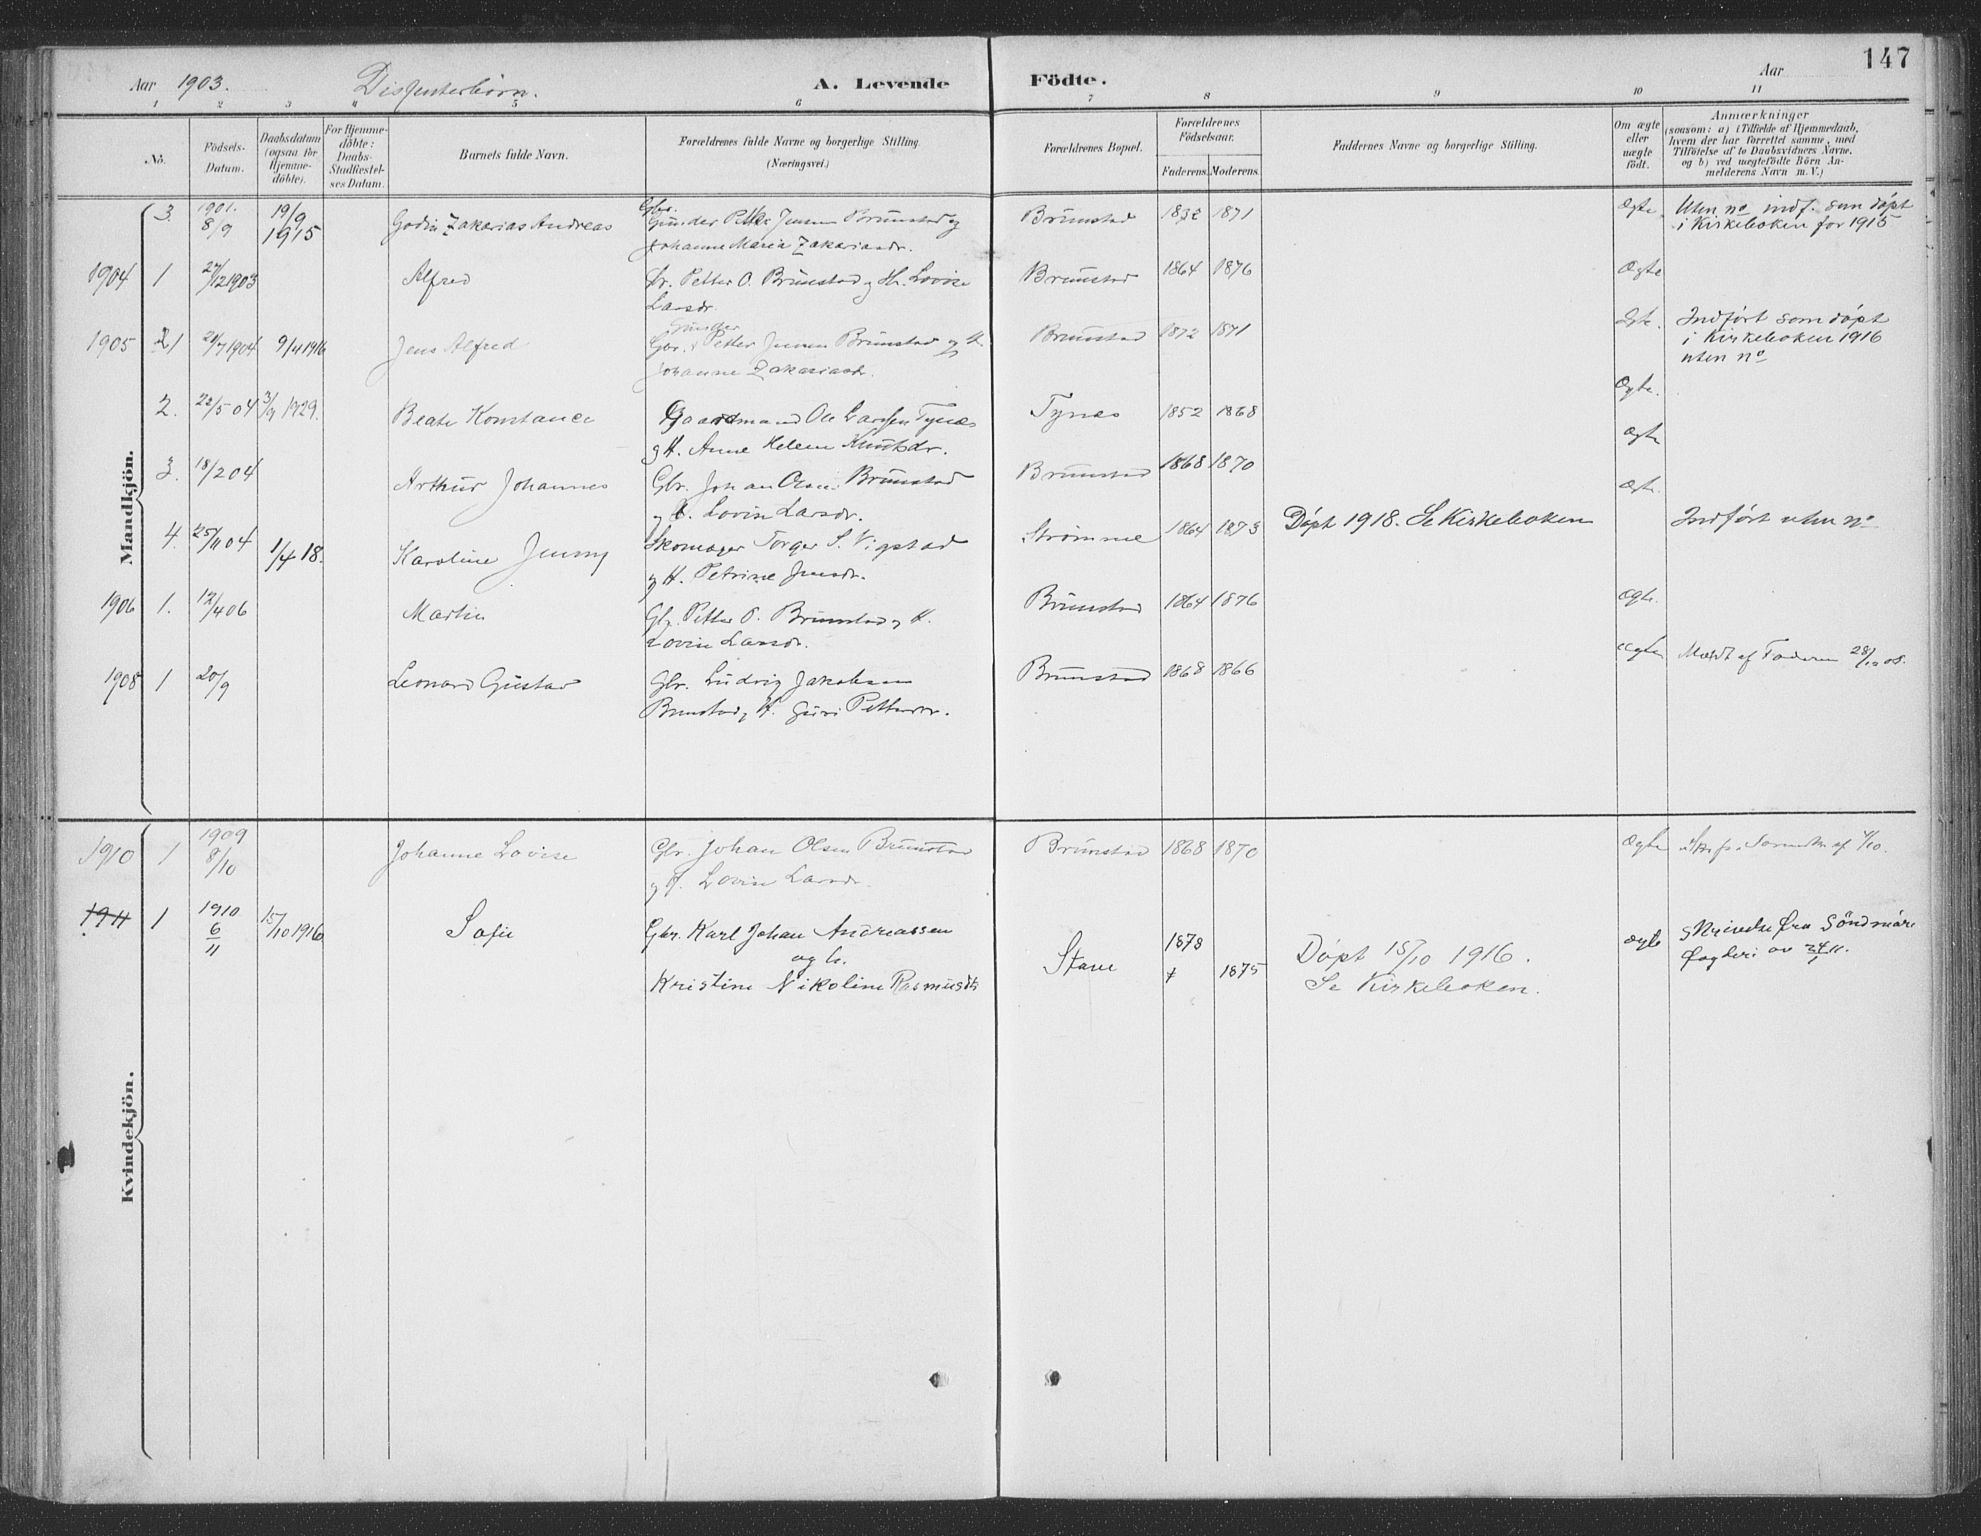 147
Aar 1903. Dissenterbörn. A. Levende Födte. Aar
1 2 3 4 5 6 7 8 9 10 11
No.
Födsels-Datum.
Daabsdatum (ogsaa for Hjemme-döbte).
For Hjemme-döbte: Daabs-Stadfæstel-ses Datum.
Barnets fulde Navn.
Forældrenes fulde Navne og borgerlige Stilling. (Næringsvei.)
Forældrenes Bopæl.
Forældrenes Födselsaar.
Faderens. Moderens.
Faddernes Navne og borgerlige Stilling.
Om ægte eller uægte födt.
Anmærkninger
(saasom: a) i Tilfælde af Hjemmedaab,
hvem der har forrettet samme, med
Tilföielse af to Daabsvidners Navne,
og b) ved uegtefödte Börn An-
melderens Navn m. V.)
Mandkjön.
3. 1901. 8/9 19/9 1915 Zakarias Andreas Gbr. Gunder Jensen Brunstad og Johanne Maria Zakariasdr. Brunstad 1832 1871 Ægte. Uten no indf. som döpt i Kirkeboken for 1915
1904 1 27/12 1903 Alfred Gbr. Petter O. Brunstad og H. Lovise Larsdr. Brunstad 1864 1876 Ægte
1905 1 1904 9/4 1916 Jens Alfred Gbr. Gunder Petter Jensen Brunstad og H. Johanne Zakariasdr. Brunstad 1872 1871 Ægte. Indfört som döpt i Kirkeboken 1916 uten no
2. 22/5 04 3/9 1929. Beate Konstance Gaardmand Ole Larsen Tynes og H. Anne Helene Knutsdr. Tynes 1852 1868 Ægte.
3. 18/2 04 Arthur Johannes Gbr. Johan Olsen Brunstad og H. Lovise Larsdr. Brunstad 1868 1870 Ægte
4. 25/11 04 1/4 18. Karoline Jenny Skomager Torger S. Vigstad og H. Petrine Jensdr. Strömme 1864 1873 Döpt 1918. Se Kirkeboken Ægte. Indfört uten no
1906 1. 12/4 06 Martin Gbr. Petter O. Brunstad og H. Lovise Larsdr. Brunstad 1864 1876 Ægte.
1908 1 20/9 Leonard Gustav Gbr. Ludvig Jakobsen Brunstad og H. Guri Pettersdr. Brunstad 1868 1866 ægte Meldt af Faderen 28/10 08.
Kvindekjön.
1910 1 1909 8/10 Johanne Lovise Gbr. Johan Olsen Brunstad og H. Lovise Larsdr. Brunstad 1868 1870 Ægte
1911 1 1910 6/11 15/10 1916 Sofie Gbr. Karl Johan Andreassen og h. Kristine Nikoline Rasmusdtr Stave 1878 1875 Döpt 15/10 1916. Se Kirkeboken. ægte Skrivelse fra Söndmöre Fogderi av